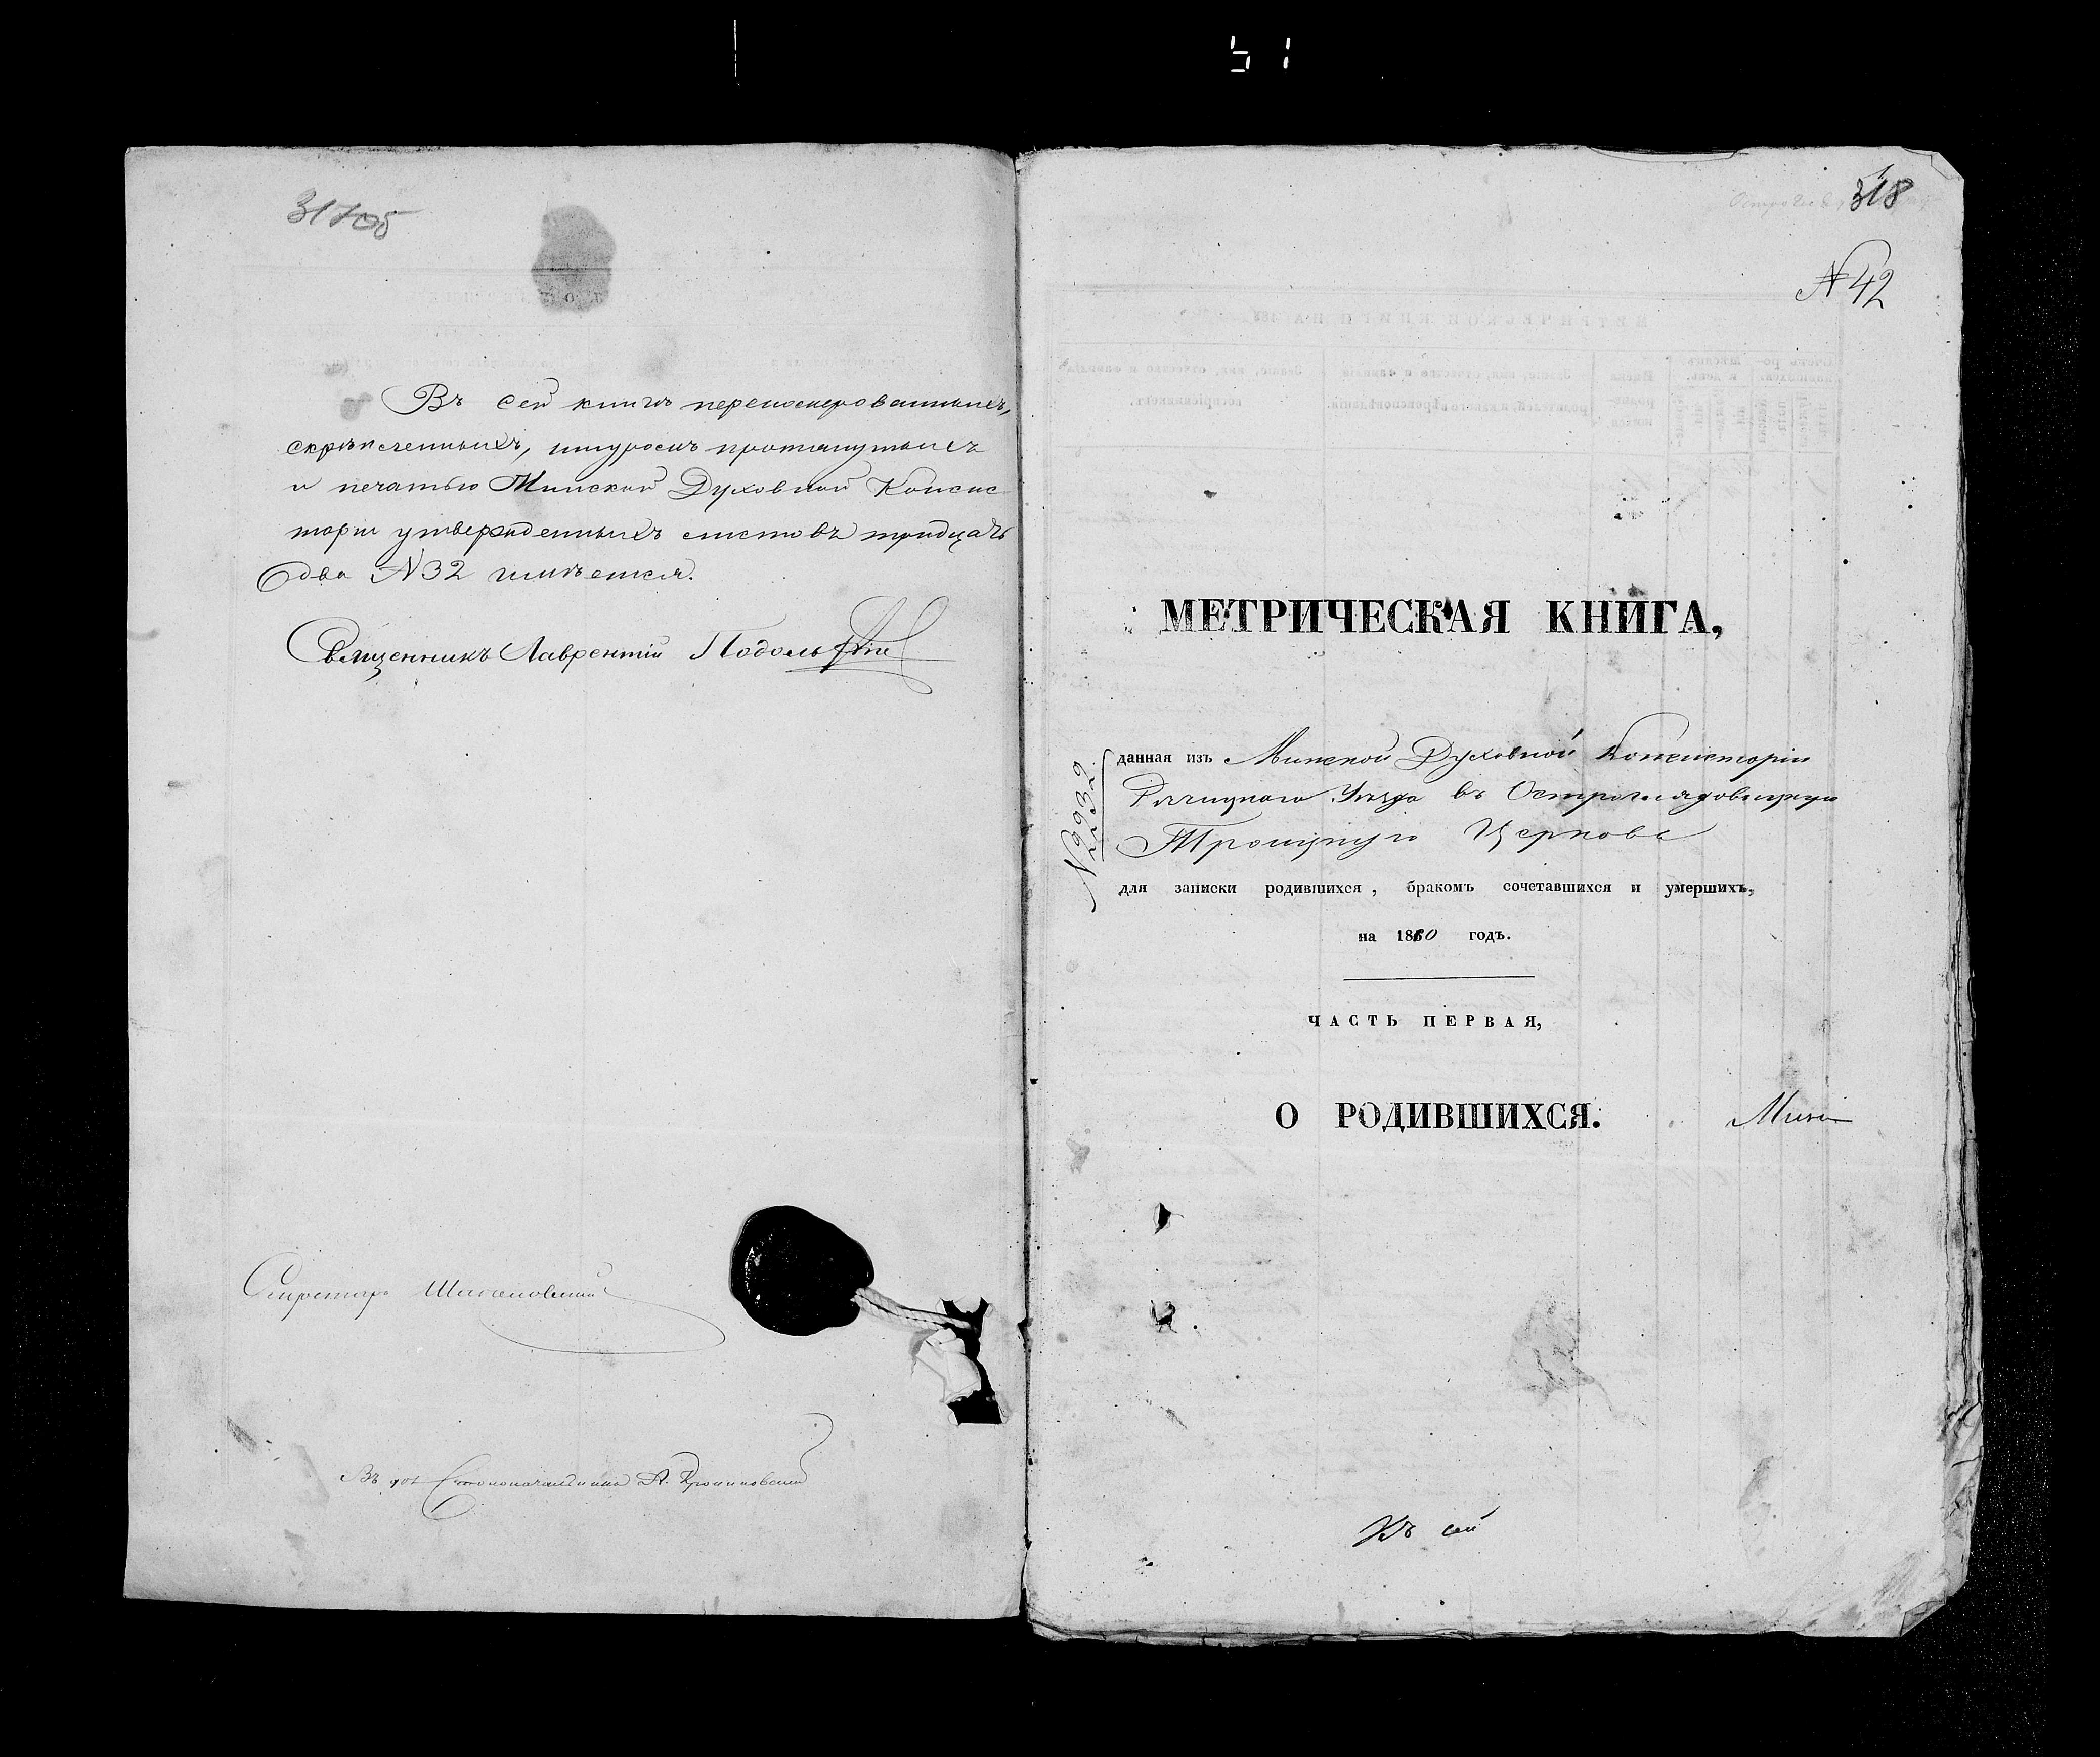 317об
Въ сей книгѣ перенумерованныхъ,
скрѣпленныхъ, шнуромъ протянутыхъ
и печатью Минской Духовной Консис
торіи утвержденныхъ листовъ тридцать
два N 32 имѣется.
Священникъ Лаврентій Подольскій
Секретарь
Въ дол Столоначальника А.
318
N 42
МЕТРИЧЕСКАЯ КНИГА,
N 2232
данная изъ Минской Духовной Консисторіи
Рѣчицкаго Уѣзда въ Остроглядовицкую
Троицкую Церковь
для записки родившихся, бракомъ сочетавшихся и умершихъ,
на 1860 годъ.
ЧАСТЬ ПЕРВАЯ,
О РОДИВШИХСЯ.
Къ сей